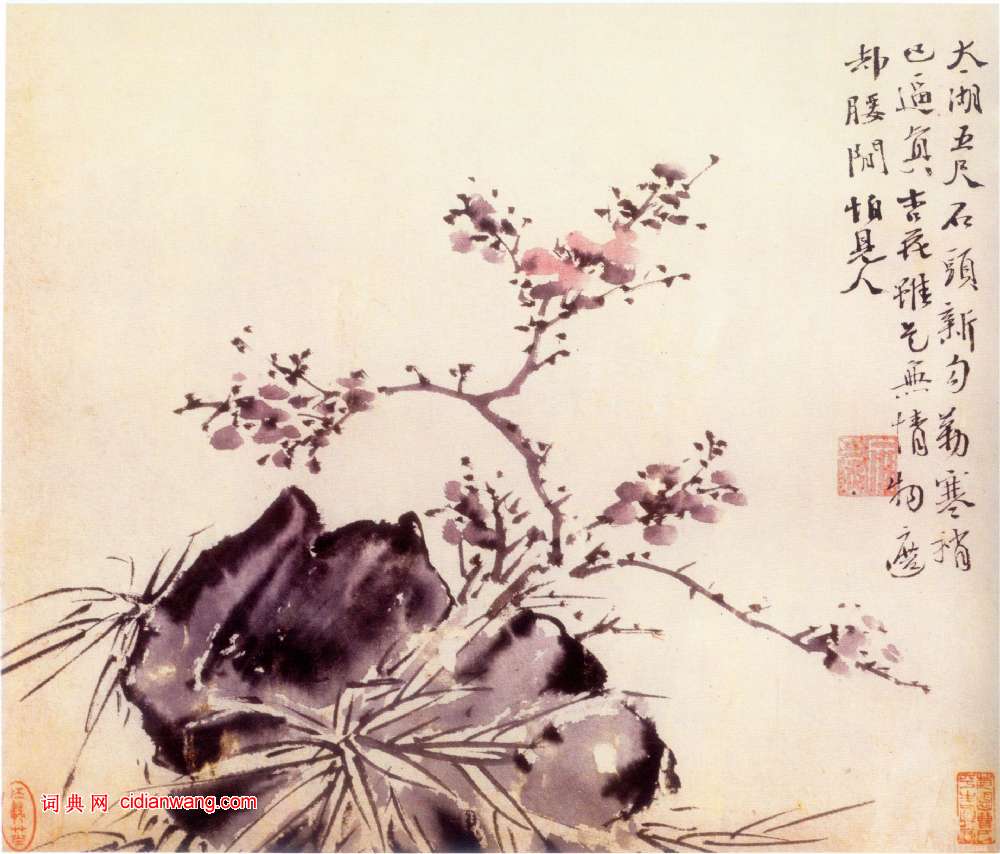 太湖五尺石頭新勾勒寒梢
已逼真杏花雖是無情物遮
却腰間怕見人
词典网 cidianwang.com